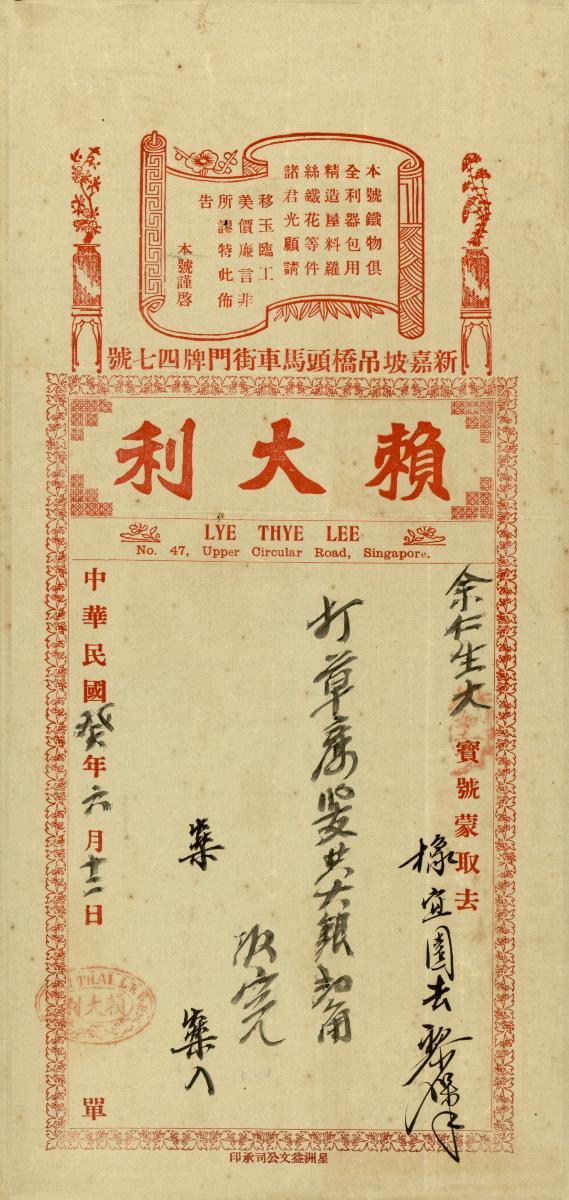 本號鐵物俱
全利器包用
精造屋料羅
絲鐵花等件
諸君光顧請
移玉臨工
美價廉言非
所謬特此佈
告
本號謹啓
新嘉坡吊橋頭馬車街門牌四七號
賴大利
LYE THYE LEE
No. 47, Upper Circular Road, Singapore.
余仁生大寶號蒙取去
橡宜園去
打草
共大銀
角
收完
中華民國癸年六月十二日
單
賴大利
星洲益文公司承印